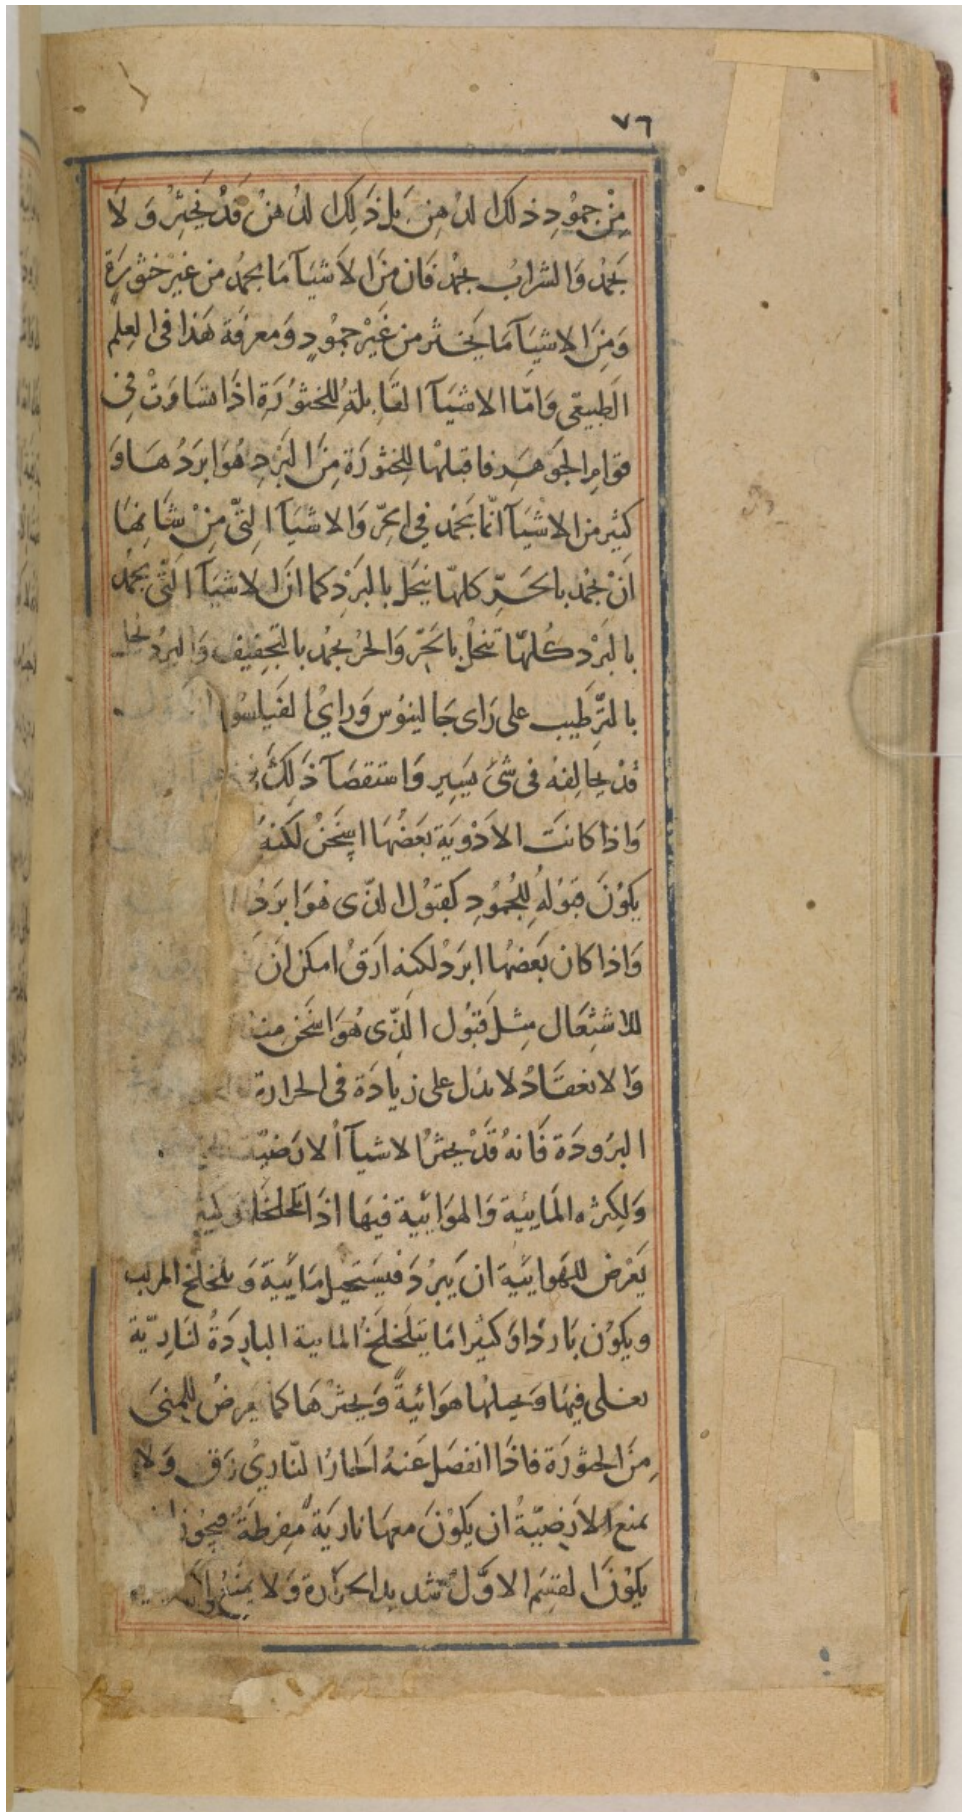 ٧٦
مِنْ جمُوُدِ ذلك الدهن بَل ذَلِكَ الدهنْ قَدْ يَخثرُ وَلاَ
يَجمْدُ وَالشرابُ يجمْد فَان مِنَ الاَشيَآ مَا يجمدُ من غيرْ خثورَةٍ
وَمِنَ الاشيَآ مَا يخثر من غَيْر جموُدٍ وَمعرفَة هَذا فى العِلْم
الطبيعى وَامّا الاشيَآ القَابلةُ للخثوُرَةِ اذَا تسَاوَتْ فى
قوام الجوَهَر فاقبلهَا للخثورَة مِنَ البَردِ هُوَ ابرَدُهَا وَ
كثير من الاشيَآ انّما يَجمُد في الحرّ وَالاشيَآ التىّ مِنْ شانهَا
اَنْ تجمْد بالحَرّ كلهّا ينحَل بالبَرْدِ كما انَّ الاشيَآ التّى يجمدُ
بالبَرْد كُلهّا تنحلْ بالحَرّ وَالحرْ يجمُد بالتجفِيف وَالبردُ يحل
بالتّرَطِيب على رَاى جَالينوُس وَراىُ الفَيلسُوْ
قدْ يخالِفهُ فى شئ يَسِيرِ وَاستقصَآ ذَلِكَ
وَاذا كانَت الاَدْوِيَة بَعَضُهَا اسْخَنُ لكنهُ
يكوُنَ قبوُلهُ لِلجُموُدِ كقبوُل الذّى هُوَ ابرَدْ
وَاذا كان بَعضهُا ابرَدْ لكنه ارَقُ امكن ان
للاشتِعَال مِثلَ قبُول الذّى هُوَ اسَخَن منهُ
وَالانعقَادُ لا يدُل على زيادَة فى الحرارة
البرُودَة فَانهُ قَدْ يخثرُ الاشيآ الاَرَضيّة
وَلِكثرَه المَائيَة وَالهوَائية فيهَا اذَا تخلخل
يَعَرْض للهَوائيَة ان يَبرُدَ فَيَستَحيل مَائيةَ وَ يلخلخ المركب
ويكوُن بَاردًا وَكثيرا مَا يتَلخلَخُ المايية البارِدَةُ لنَارِيّة
تغلى فيهَا وَيحيلهَا هوَائيةً وَيخثرْهَا كَمَا يَعرضُ لِلمنى
مِنَ الخثورَة فاذَا انفصَل عَنهُ الحَارُ النّارىُ رَق وَلا
يمنعِ الارَضِيّةُ ان يكوُنَ معهَا ناريَةُ مُفرِطَةُ فيجُوزُ
يكوُنَ القِسَم الاوَّل شَديد الحرَارة وَلا يمنَع